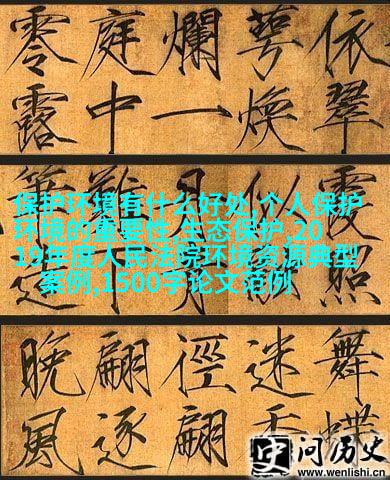 依翠
萼煥
爛一
庭中
零露
保护环境有什么好处,个人保护
环境的重要性,生态保护,20
19年度人民法院环境资源典型
案例,1500字论文范例
舞蝶
迷香
徑翩
翩逐
晚風
问历史
www.wenlishi.cn